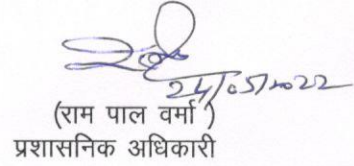 24/05/2022
(राम पाल वर्मा )
प्रशासनिक अधिकारी